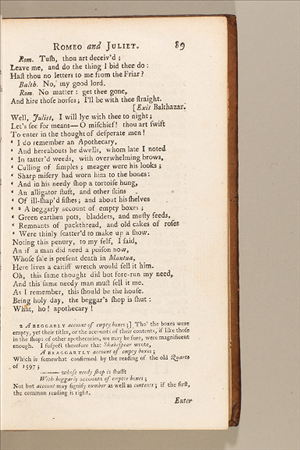 ROMEO and JULIET. 89
Rom. Tuſh, thou art deceiv'd;
Leave me, and do the thing I bid thee do:
Haſt thou no letters to me from the Friar?
Balth. No, my good lord.
Rom. No matter: get thee gone,
And hire thoſe horſes; I'll be with thee ſtraight.
[Exit Balthazar.
Well, Juliet, I will lye with thee to night;
Let's ſee for means—O miſchief! thou art ſwift
To enter in the thought of deſperate men!
“ I do remember an Apothecary,
“ And hereabouts he dwells, whom late I noted
“ In tatter'd weeds, with overwhelming brows,
“ Culling of ſimples; meager were his looks;
“ Sharp miſery had worn him to the bones:
“ And in his needy ſhop a tortoiſe hung,
“ An alligator ſtuft, and other ſkins
“ Of ill-ſhap'd fiſhes; and about his ſhelves
“ ² A beggarly account of empty boxes;
“ Green earthen pots, bladders, and muſty ſeeds,
“ Remnants of packthread, and old cakes of roſes
“ Were thinly ſcatter'd to make up a ſhow.
Noting this penury, to my ſelf, I ſaid,
An if a man did need a poiſon now,
Whoſe ſale is preſent death in Mantua,
Here lives a caitiff wretch would ſell it him.
Oh, this ſame thought did but fore-run my need,
And this ſame needy man muſt ſell it me.
As I remember, this ſhould be the houſe.
Being holy day, the beggar's ſhop is ſhut:
What, ho! apothecary!
2 A BEGGARLY account of empty boxes;] Tho' the boxes were
empty, yet their titles, or the accounts of their contents, if like thoſe
in the ſhops of other apothecaries, we may be ſure, were magnificent
enough. I ſuſpect therefore that Shakeſpear wrote,
A BRAGGARTLY account of empty boxes;
Which is ſomewhat confirmed by the reading of the old Quarto
of 1597;
—— whoſe needy ſhop is ſtufft
With beggarly accounts of empty boxes;
Not but account may ſignify number as well as contents; if the firſt,
the common reading is right.
Enter